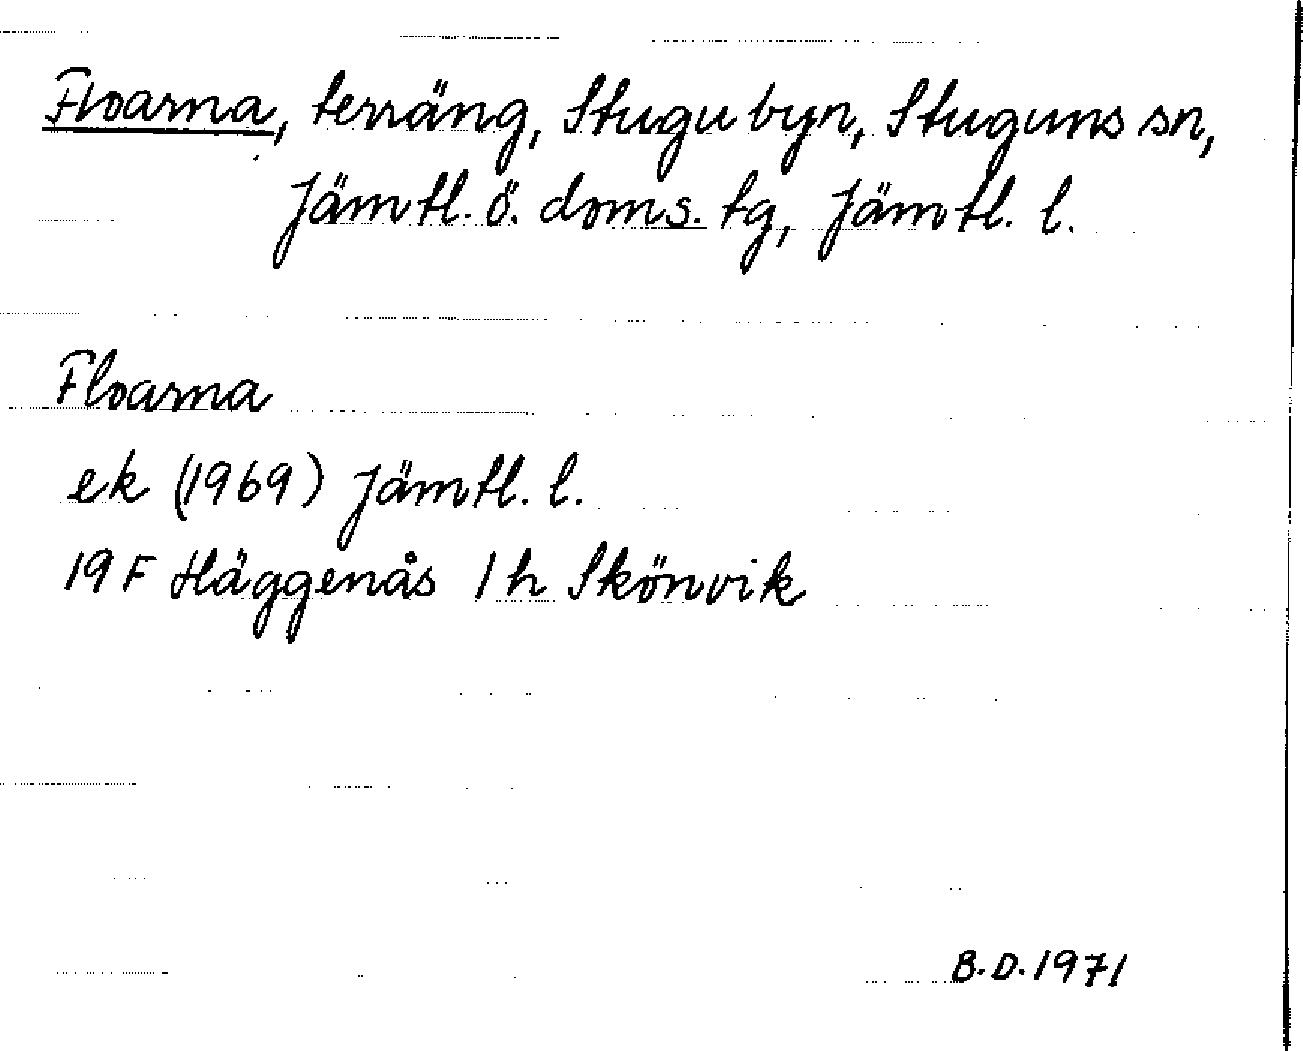 Floarna, terräng, Stugubyn, Stuguns sn,
Jämtl. ö. doms. tg, Jämtl. l.
Floarna
ek (1969) Jämtl. l.
19 F Häggenås 1 h Skönvik
B.D. 1971